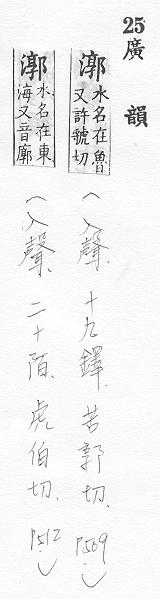 25廣韻
漷水名在魯又許虢切(入聲、十九鐸、苦郭切、P509.)
漷水名在東海又音廓(入聲、二十陌、虎伯切、P512)